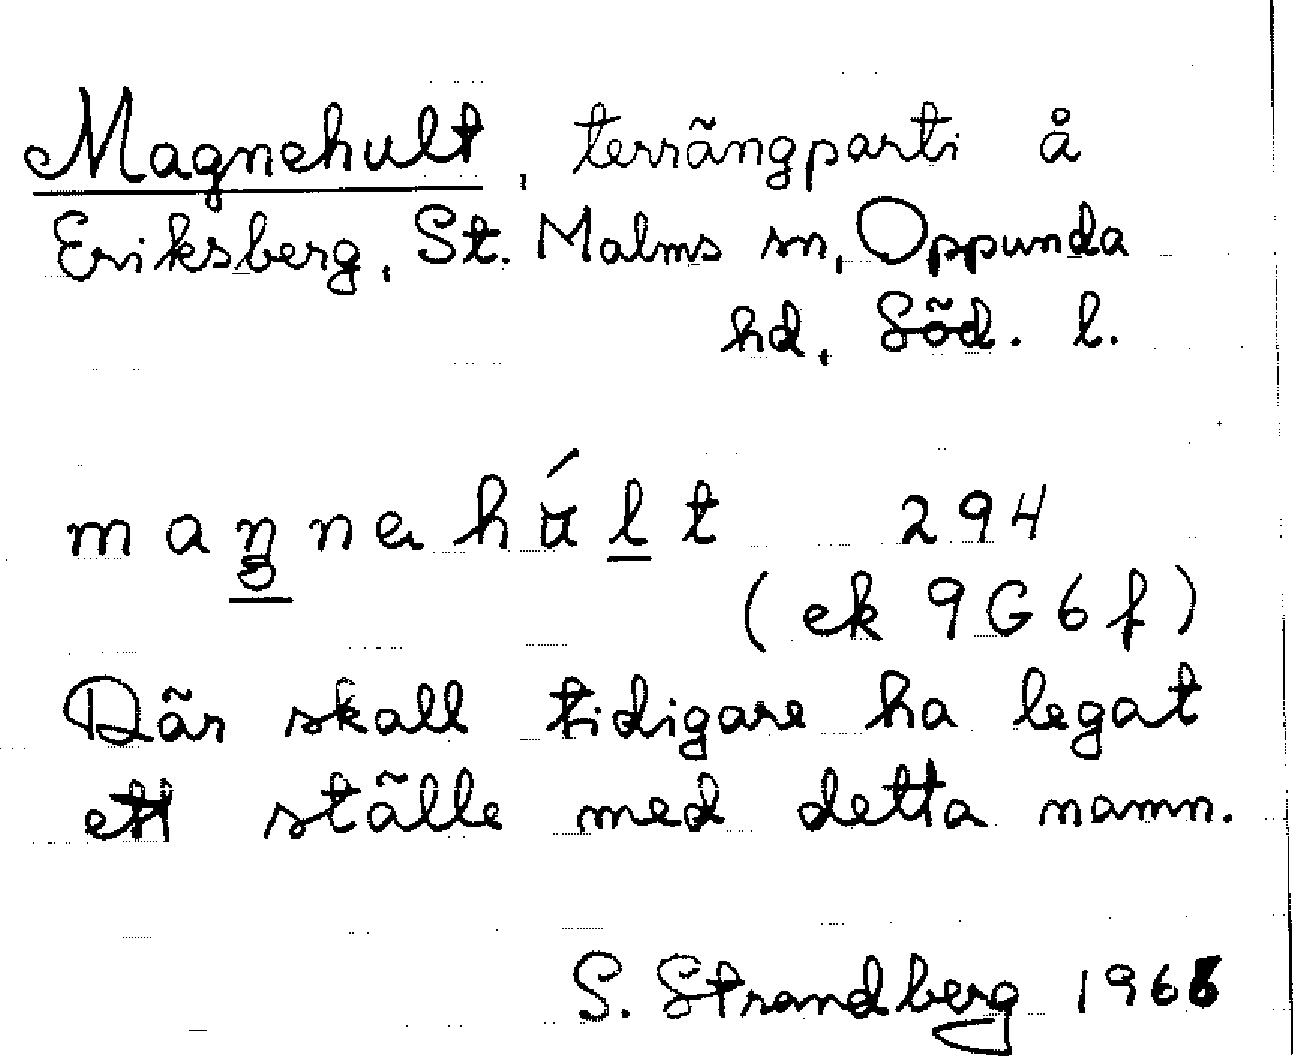 Magnehult, terrängparti å
Eriksberg, St. Malms sn, Oppunda
hd, Söd. l.
maŋnehúlt 294
(ek 9G6f)
Där skall tidigare ha legat
ett ställe med detta namn.
S. Strandberg 1966